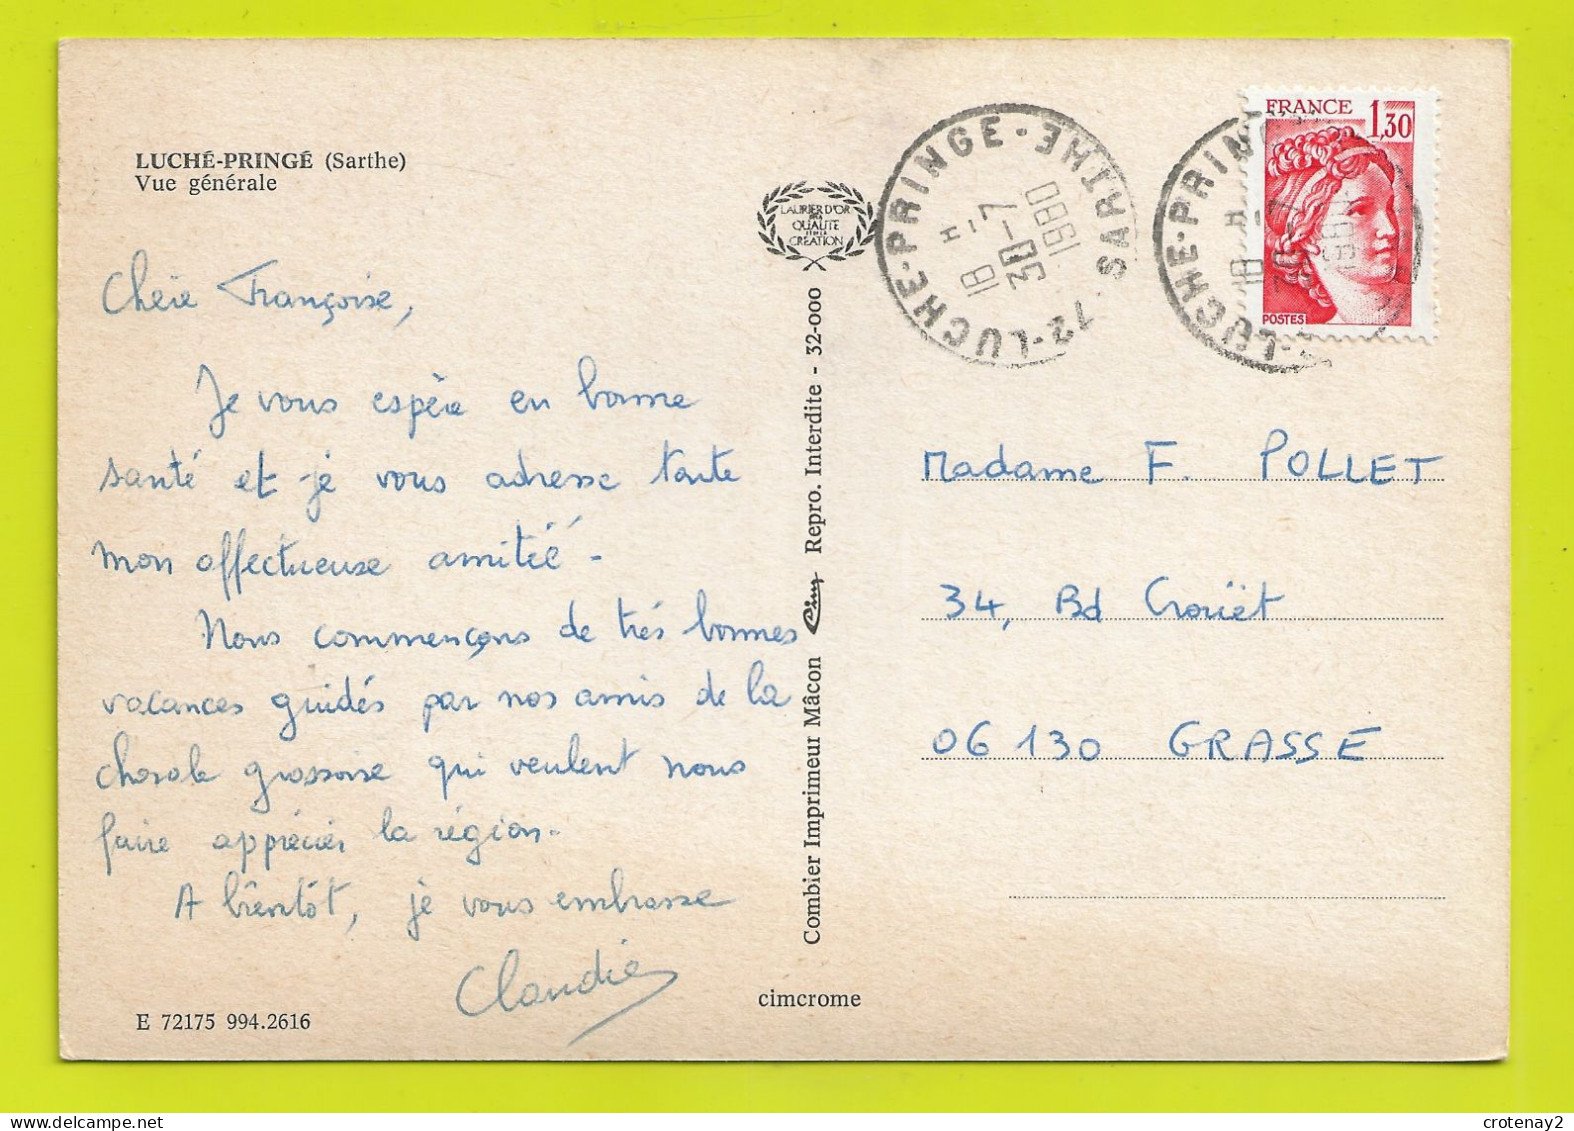 LUCHÉ-PRINGÉ (Sarthe)
Vue générale
Chère Françoise,
Je vous espère en bonne
santé et je vous adresse toute
mon affectueuse amitié -
Nous commençons de très bonnes
vacances guidés par nos amis de la
chorale grassoise qui veulent nous
faire apprécier la région.
A bientôt, je vous embrasse
Claudie
E 72175 994.2616
LAURIER D'OR
DE LA
QUALITÉ
ET DE LA
CRÉATION
Combier Imprimeur Mâcon Cim Repro. Interdite - 32-000
cimcrome
72-LUCHE-PRINGE-SARTHE
18 H
30-7
1980
72-LUCHE-PRINGE
18 H
30-7
1980
FRANCE 1,30
POSTES
Madame F. POLLET
34, Bd Crouët
06130 GRASSE
crotenay2